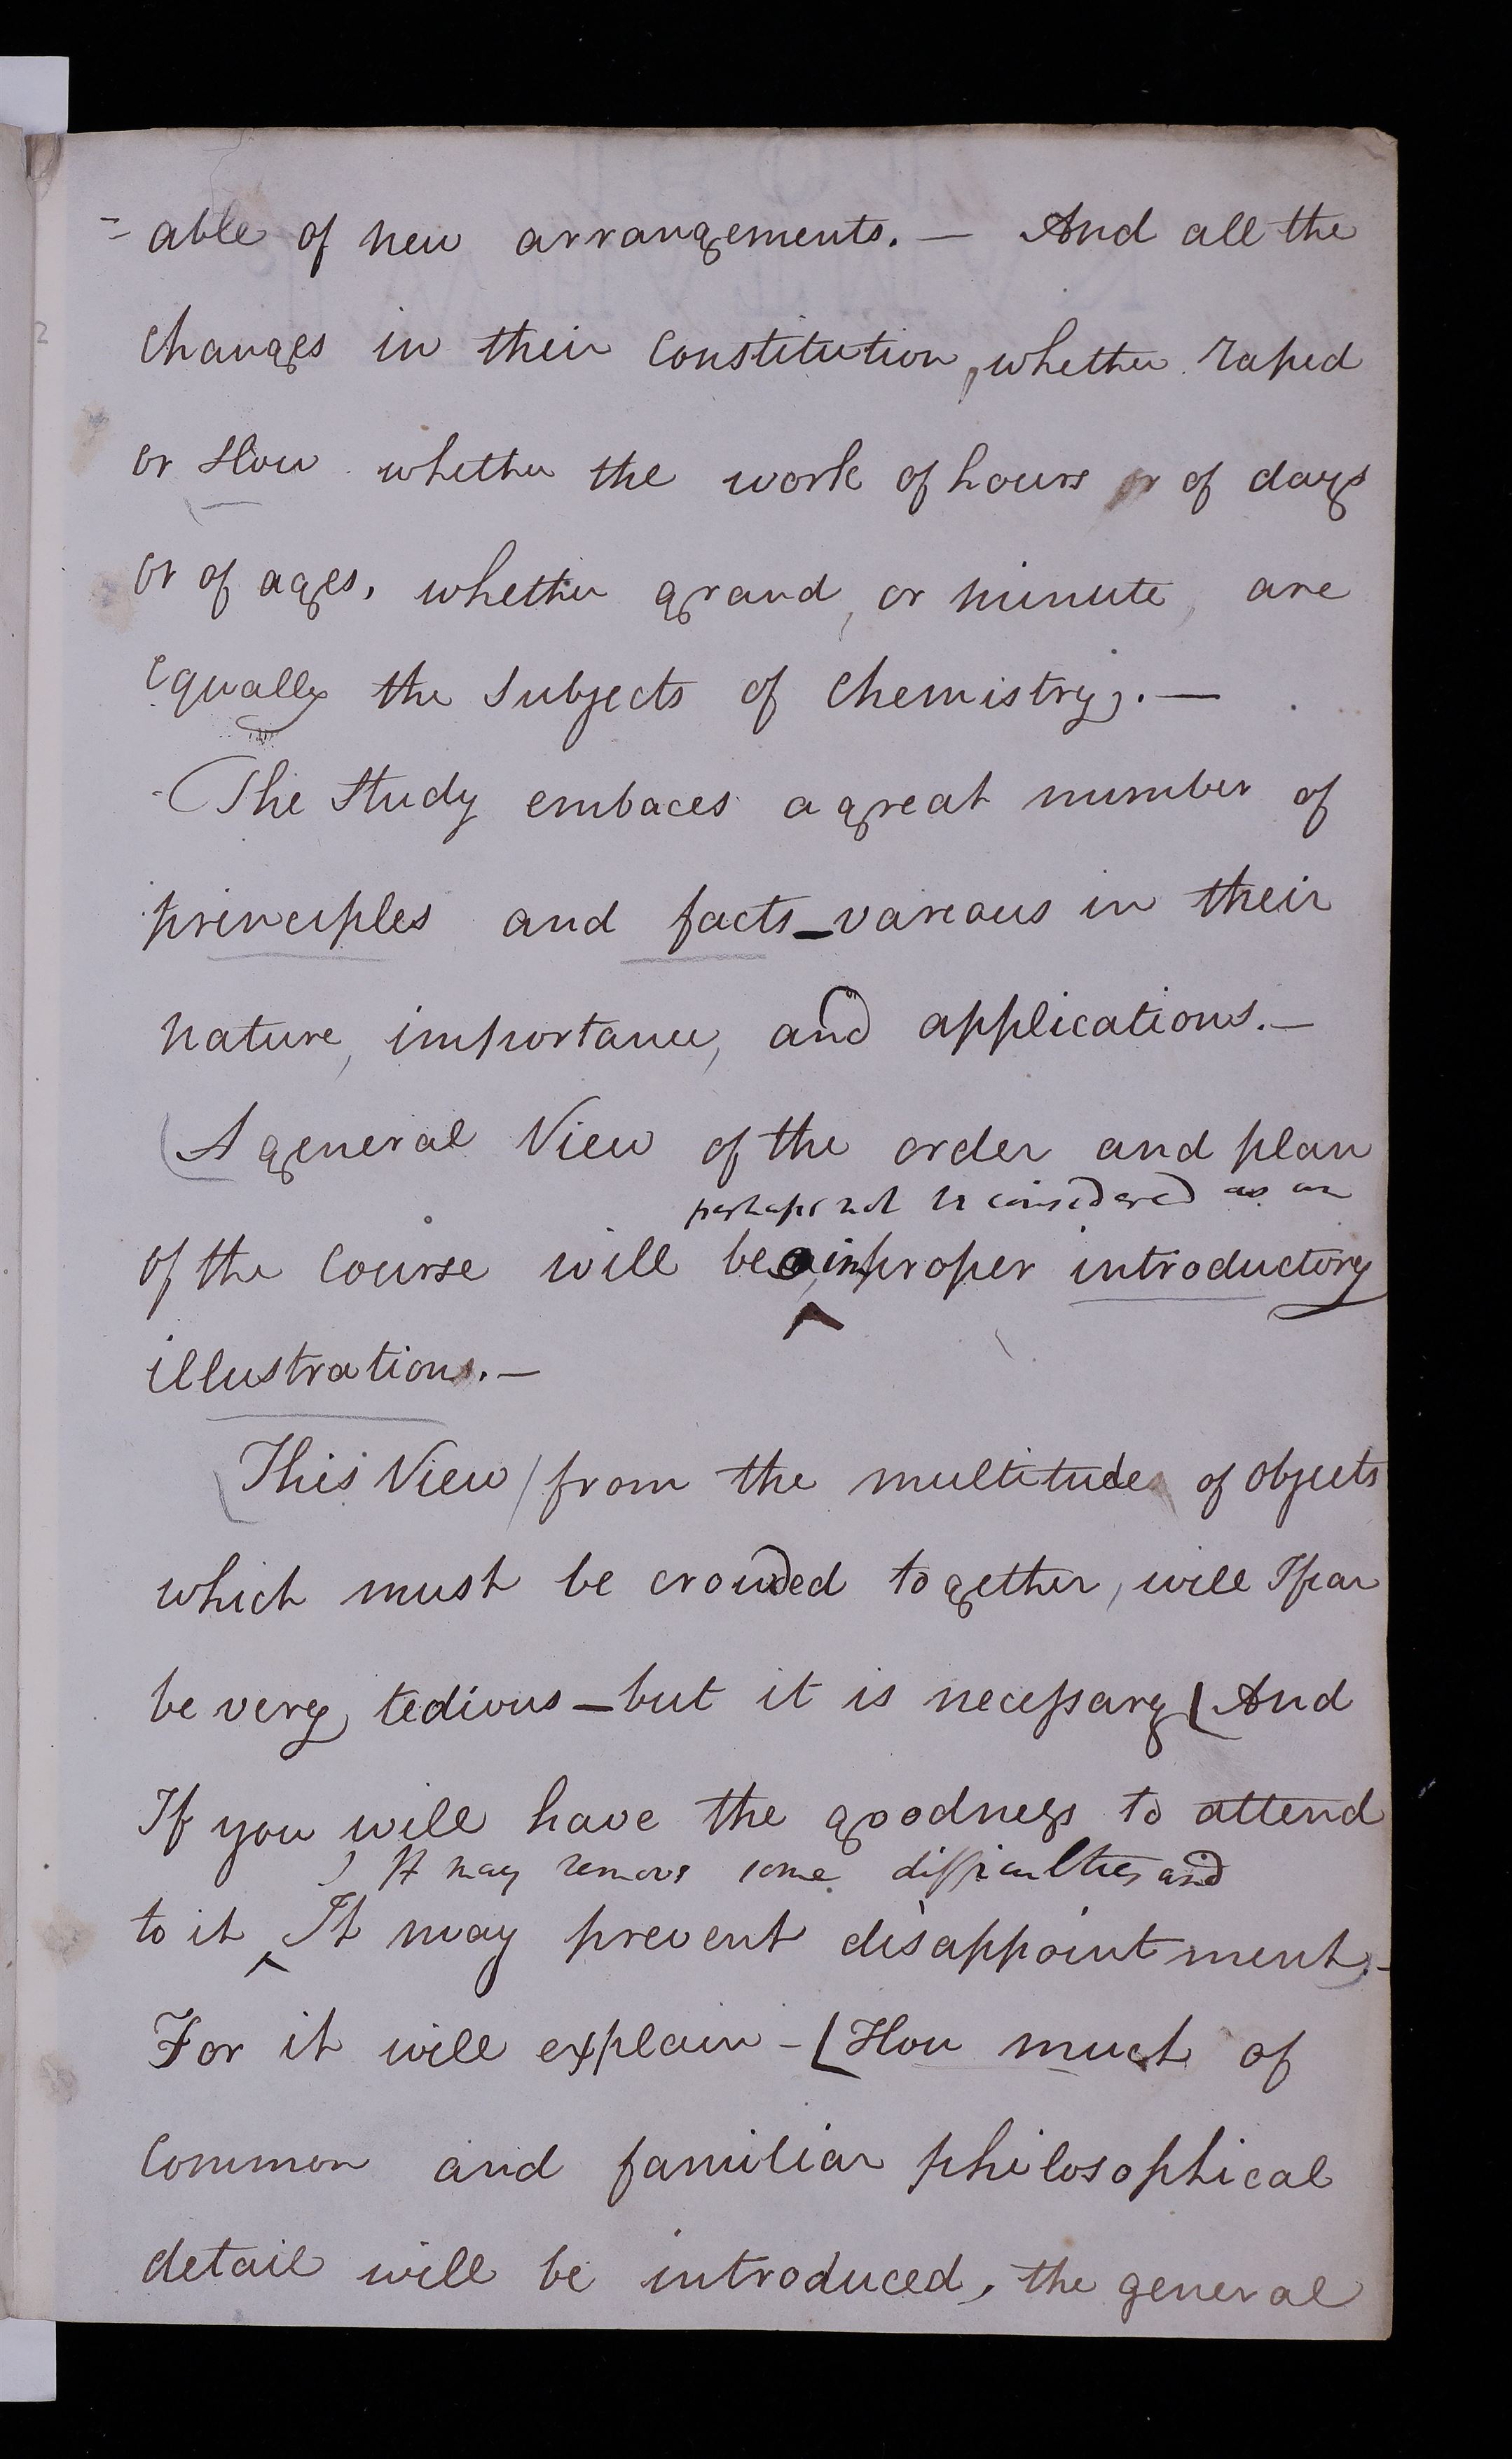 = able of new arrangements. — And all the
changes in their constitution, whether raped
or slow whether the work of hours or of days
or of ages, whether grand, or minute, are
equally the subjects of chemistry. —
The study embaces a great number of
principles and facts _ various in their
nature, importance, and applications. —
A general View of the order and plan
perhaps not be considered as an
of the course will be improper introductory
illustrations. —
This View / from the multitude of objects
which must be crowded together, will I fear
be very tedious _ but it is necessary ( And
If you will have the goodness to attend
) It may remove some difficulties and
to it ^ It may prevent disappointment. -
For it will explain - ( How much of
common and familiar philosophical
detail will be introduced, the general